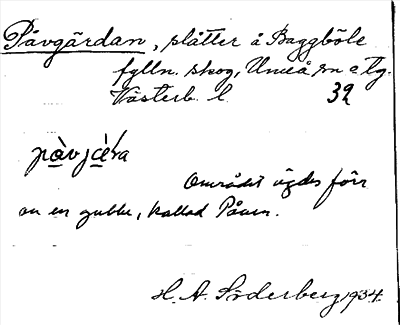 Påvgärdan, slåtter å Baggböle
fylln. skog, Umeå sn o tg.
Västerb. l. 32
Området ägdes förr
av en gubbe, kallad Påven.
H. A. Söderberg, 1934.